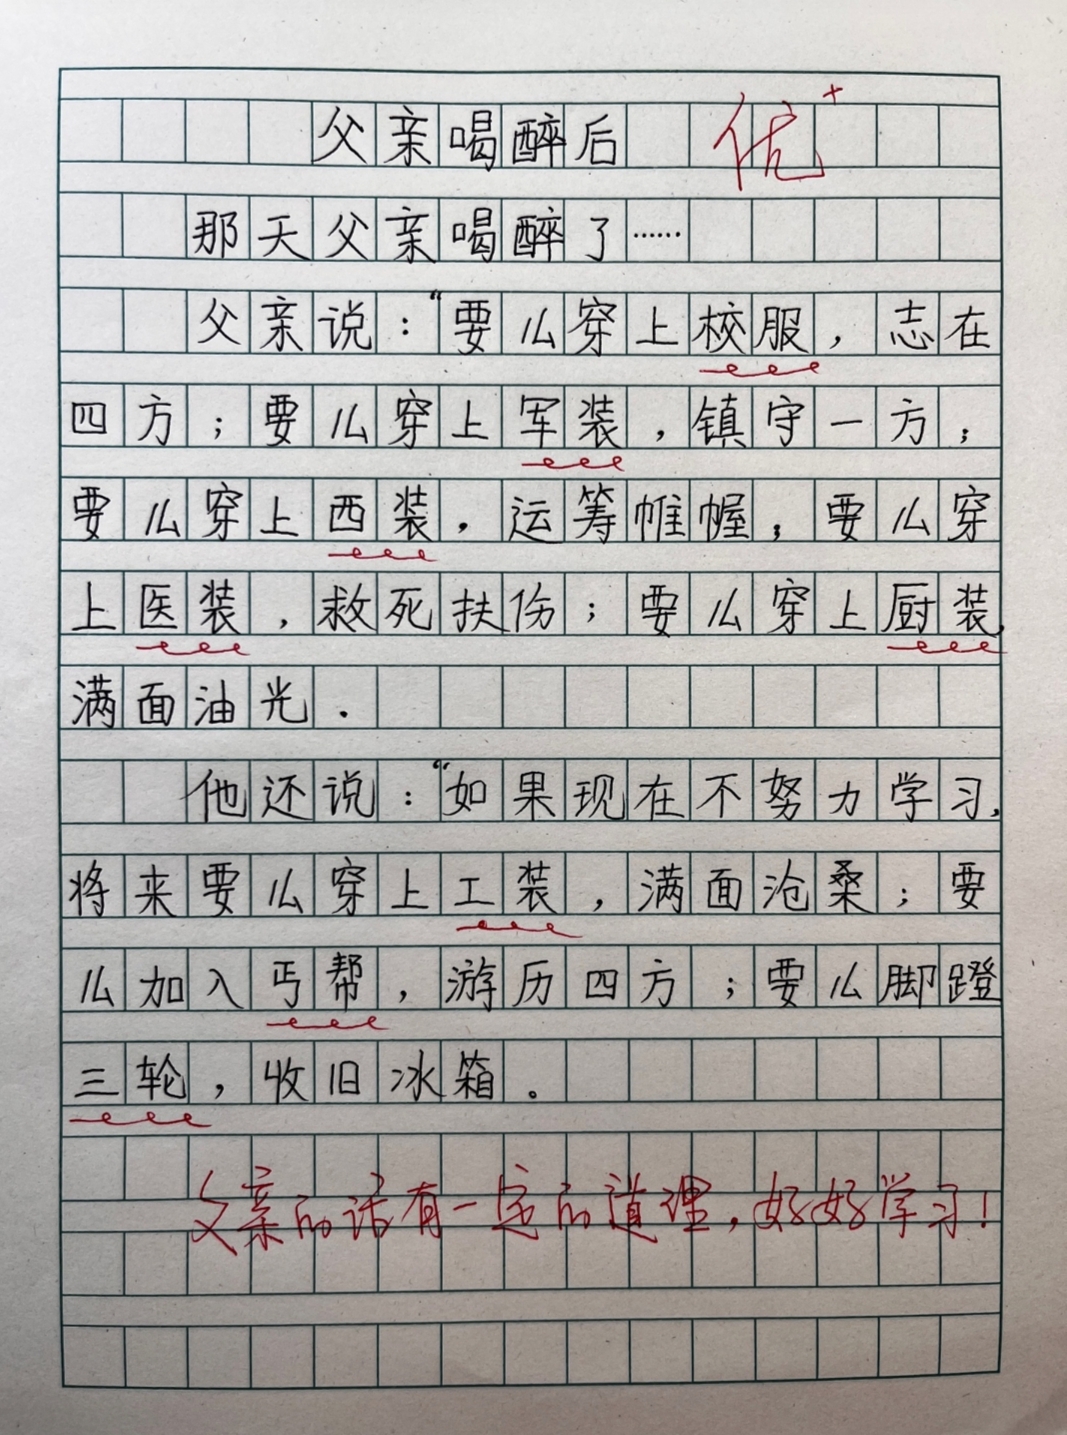 父亲喝醉后 优+
那天父亲喝醉了……
父亲说：“要么穿上校服，志在
四方；要么穿上军装，镇守一方；
要么穿上西装，运筹帷幄；要么穿
上医装，救死扶伤；要么穿上厨装，
满面油光．
他还说：“如果现在不努力学习，
将来要么穿上工装，满面沧桑；要
么加入丐帮，游历四方；要么脚蹬
三轮，收旧冰箱。
父亲的话有一定的道理，好好学习！